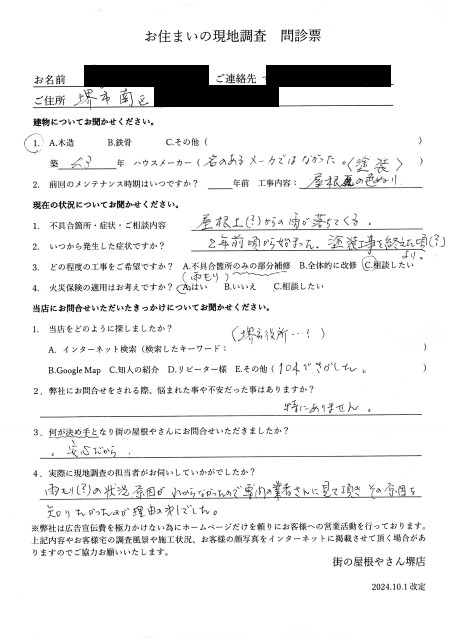 お住まいの現地調査 問診票
お名前 ご連絡先
ご住所 堺市南区
建物についてお聞かせください。
1. A.木造 B.鉄骨 C.その他 ( )
築 23 年 ハウスメーカー ( 名のあるメーカではなかった。) <塗装>
2. 前回のメンテナンス時期はいつですか? 年前 工事内容: 屋根の色ぬり
現在の状況についてお聞かせください。
1. 不具合箇所・症状・ご相談内容 屋根上(?)からの雨が落ちてくる。
2. いつから発生した症状ですか? 2年前頃から始まった。塗装工事を終えた頃(?)より。
3. どの程度の工事をご希望ですか? A.不具合箇所のみの部分補修 B.全体的に改修 C.相談したい
(雨もり)
4. 火災保険の適用はお考えですか? A.はい B.いいえ C.相談したい
当店にお問合せいただいたきっかけについてお聞かせください。
1. 当店をどのように探しましたか?
(堺市役所…?)
A. インターネット検索 (検索したキーワード: )
B.Google Map C.知人の紹介 D.リピーター様 E.その他 ( でさがした。 )
2. 弊社にお問合せをされる際、悩まれた事や不安だった事はありますか?
特にありません。
3. 何が決め手となり街の屋根やさんにお問合せいただきましたか?
・安心だから
4. 実際に現地調査の担当者がお伺いしていかがでしたか?
雨もり(?)の状況原因がわからなかったので専門の業者さんに見て頂きその原因を
知りたかったのが理由の でした。
※弊社は広告宣伝費を極力かけない為にホームページだけを頼りにお客様への営業活動を行っております。
上記内容やお客様宅の調査風景や施工状況、お客様の顔写真をインターネットに掲載させて頂く場合があ
りますのでご協力お願いいたします。
街の屋根やさん堺店
2024.10.1 改定